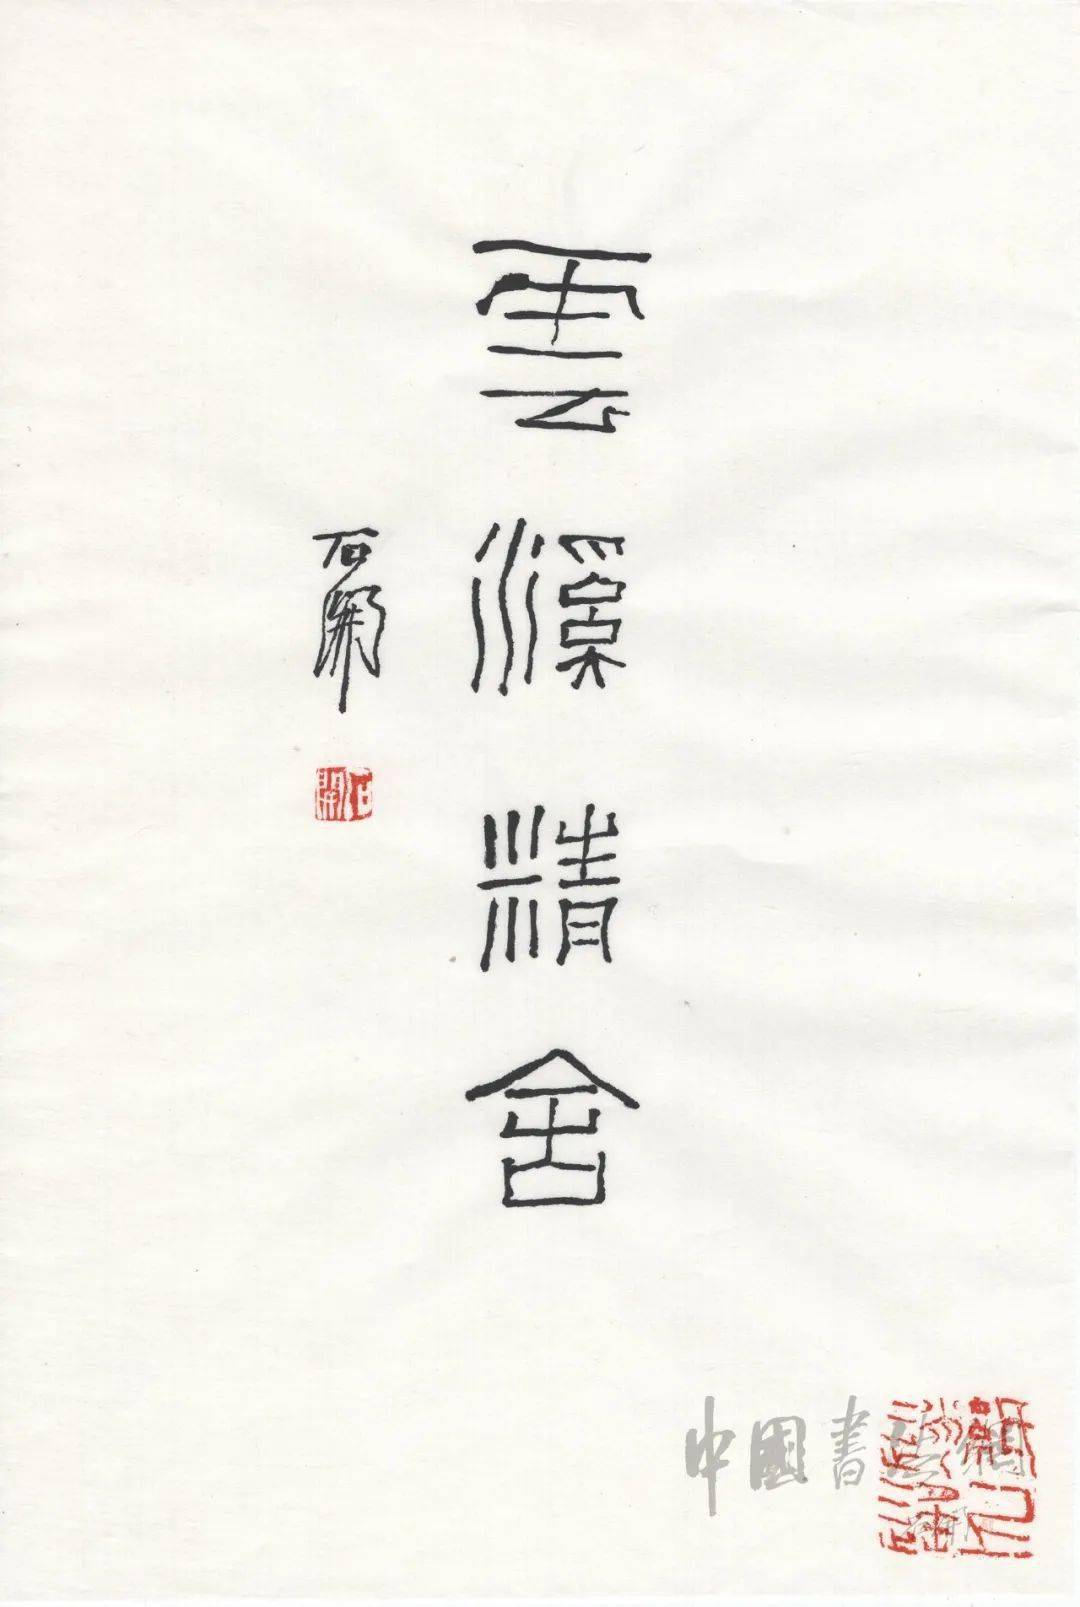 雲溪精舍
石開
石開
中國書法網